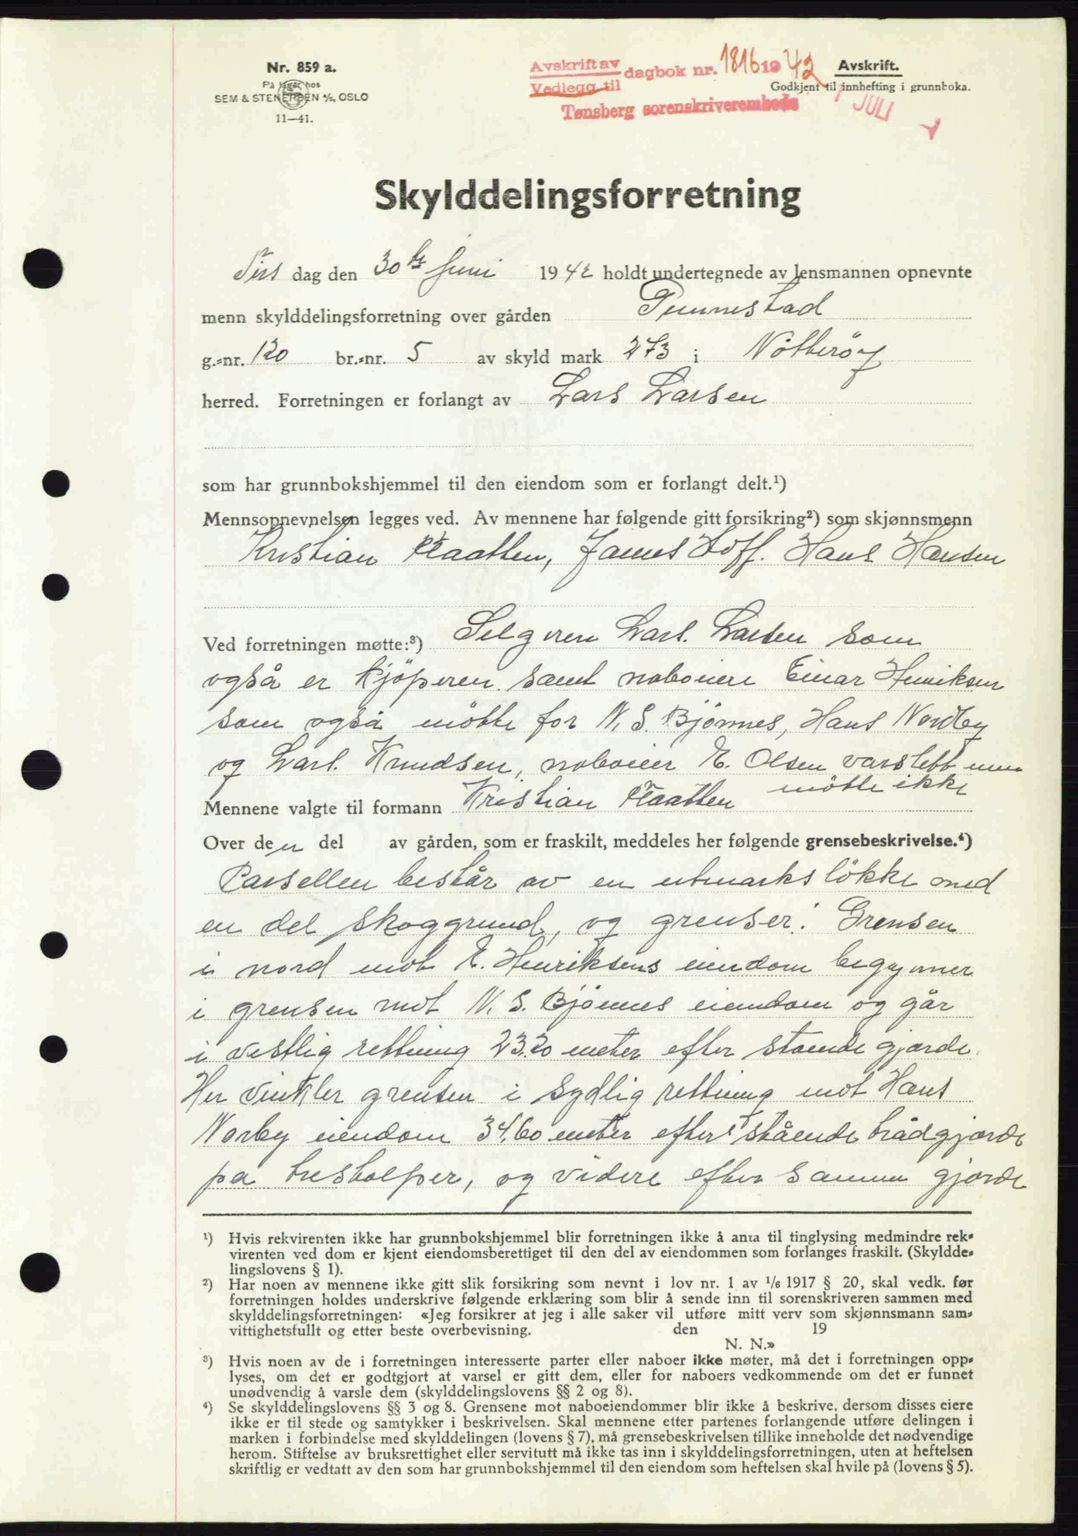 Nr. 859 a.
På lager hos
SEM & STENERSEN A/S, OSLO
11—41.
Avskrift av
Vedlegg til
dagbok nr. 1816 1942
Tønsberg sorenskriverembede
Avskrift.
Godkjent til innhefting i grunnboka.
1 JULI
Skylddelingsforretning
Tirs dag den 30 te Juni 1942 holdt undertegnede av lensmannen opnevnte
menn skylddelingsforretning over gården
g.-nr. 120 br.-nr. 5 av skyld mark 273 i Nötteröy
herred. Forretningen er forlangt av Lars Larsen
som har grunnbokshjemmel til den eiendom som er forlangt delt.¹)
Mennsopnevnelsen legges ved. Av mennene har følgende gitt forsikring²) som skjønnsmenn
Kristian Flaatten, James Hoff. Hans Hansen
Ved forretningen møtte:³) Selgeren Larl. Larsen som
også er kjöperen samt naboiere Einar Henriksen
som også mötte for N. S. Bjönnes, Hans Nordby
og Larl. Knudsen, naboier E. Olsen varslett men
mötte ikke
Mennene valgte til formann Kristian Flaatten
Over den del av gården, som er fraskilt, meddeles her følgende grensebeskrivelse.⁴)
Parsellen består av en utmarkslökke med
en del skoggrund, og grenser: Grensen
i nord mot E. Henriksens eiendom begynner
i grensen mot N. S. Bjönnes eiendom og går
i vestlig rettning 23.20 meter efter stående gjærde.
Her vinkler grensen i sydlig rettning mot Hans
Norby eiendom 34,60 meter efter stående trådgjærde
på trestolper, og videre efter samme gjærde
¹) Hvis rekvirenten ikke har grunnbokshjemmel blir forretningen ikke å anta til tinglysing medmindre rek-
virenten ved dom er kjent eiendomsberettiget til den del av eiendommen som forlanges fraskilt. (Skyldde-
lingslovens § 1).
²) Har noen av mennene ikke gitt slik forsikring som nevnt i lov nr. 1 av 1/6 1917 § 20, skal vedk. før
forretningen holdes underskrive følgende erklæring som blir å sende inn til sorenskriveren sammen med
skylddelingsforretningen: «Jeg forsikrer at jeg i alle saker vil utføre mitt verv som skjønnsmann sam-
vittighetsfullt og etter beste overbevisning. den 19
N. N.»
³) Hvis noen av de i forretningen interesserte parter eller naboer ikke møter, må det i forretningen opp-
lyses, om det er godtgjort at varsel er gitt dem, eller for naboers vedkommende om det er funnet
unødvendig å varsle dem (skylddelingslovens §§ 2 og 8).
⁴) Se skylddelingslovens §§ 3 og 8. Grensene mot naboeiendommer blir ikke å beskrive, dersom disses eiere
ikke er til stede og samtykker i beskrivelsen. Skal mennene etter partenes forlangende utføre delingen i
marken i forbindelse med skylddelingen (lovens § 7), må grensebeskrivelsen tillike inneholde det nødvendige
herom. Stiftelse av bruksrettighet eller servitutt må ikke tas inn i skylddelingsforretningen, uten at heftelsen
skriftlig er vedtatt av den som har grunnbokshjemmel til den eiendom som heftelsen skal hvile på (lovens § 5).